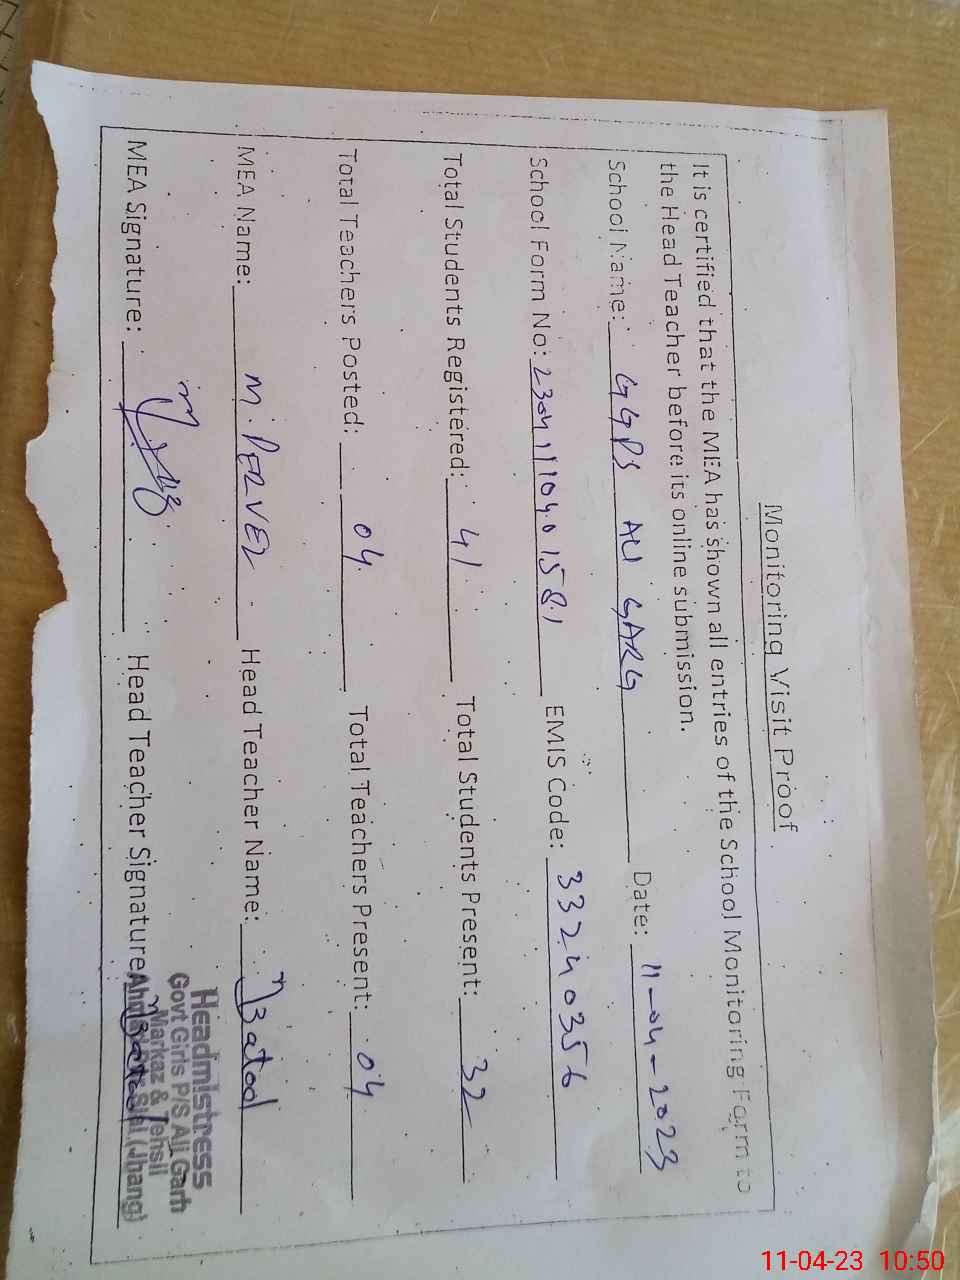 Monitoring Visit Proof
It is certified that the MEA has shown all entries of the School Monitoring Form to
the Head Teacher before its online submission.
School Name: GGPS ALI GARG Date: 11-04-2023
School Form No: EMIS Code: 33240356
Total Students Registered: 41 Total Students Present: 32
Total Teachers Posted: 04 Total Teachers Present: 04
MEA Name: M. PERVEZ Head Teacher Name: Batool
MEA Signature: Head Teacher Signature: Batool
Headmistress
Govt Girls P/S Ali Garh
Markaz & Tehsil
Sial (Jhang)
11-04-23 10:50